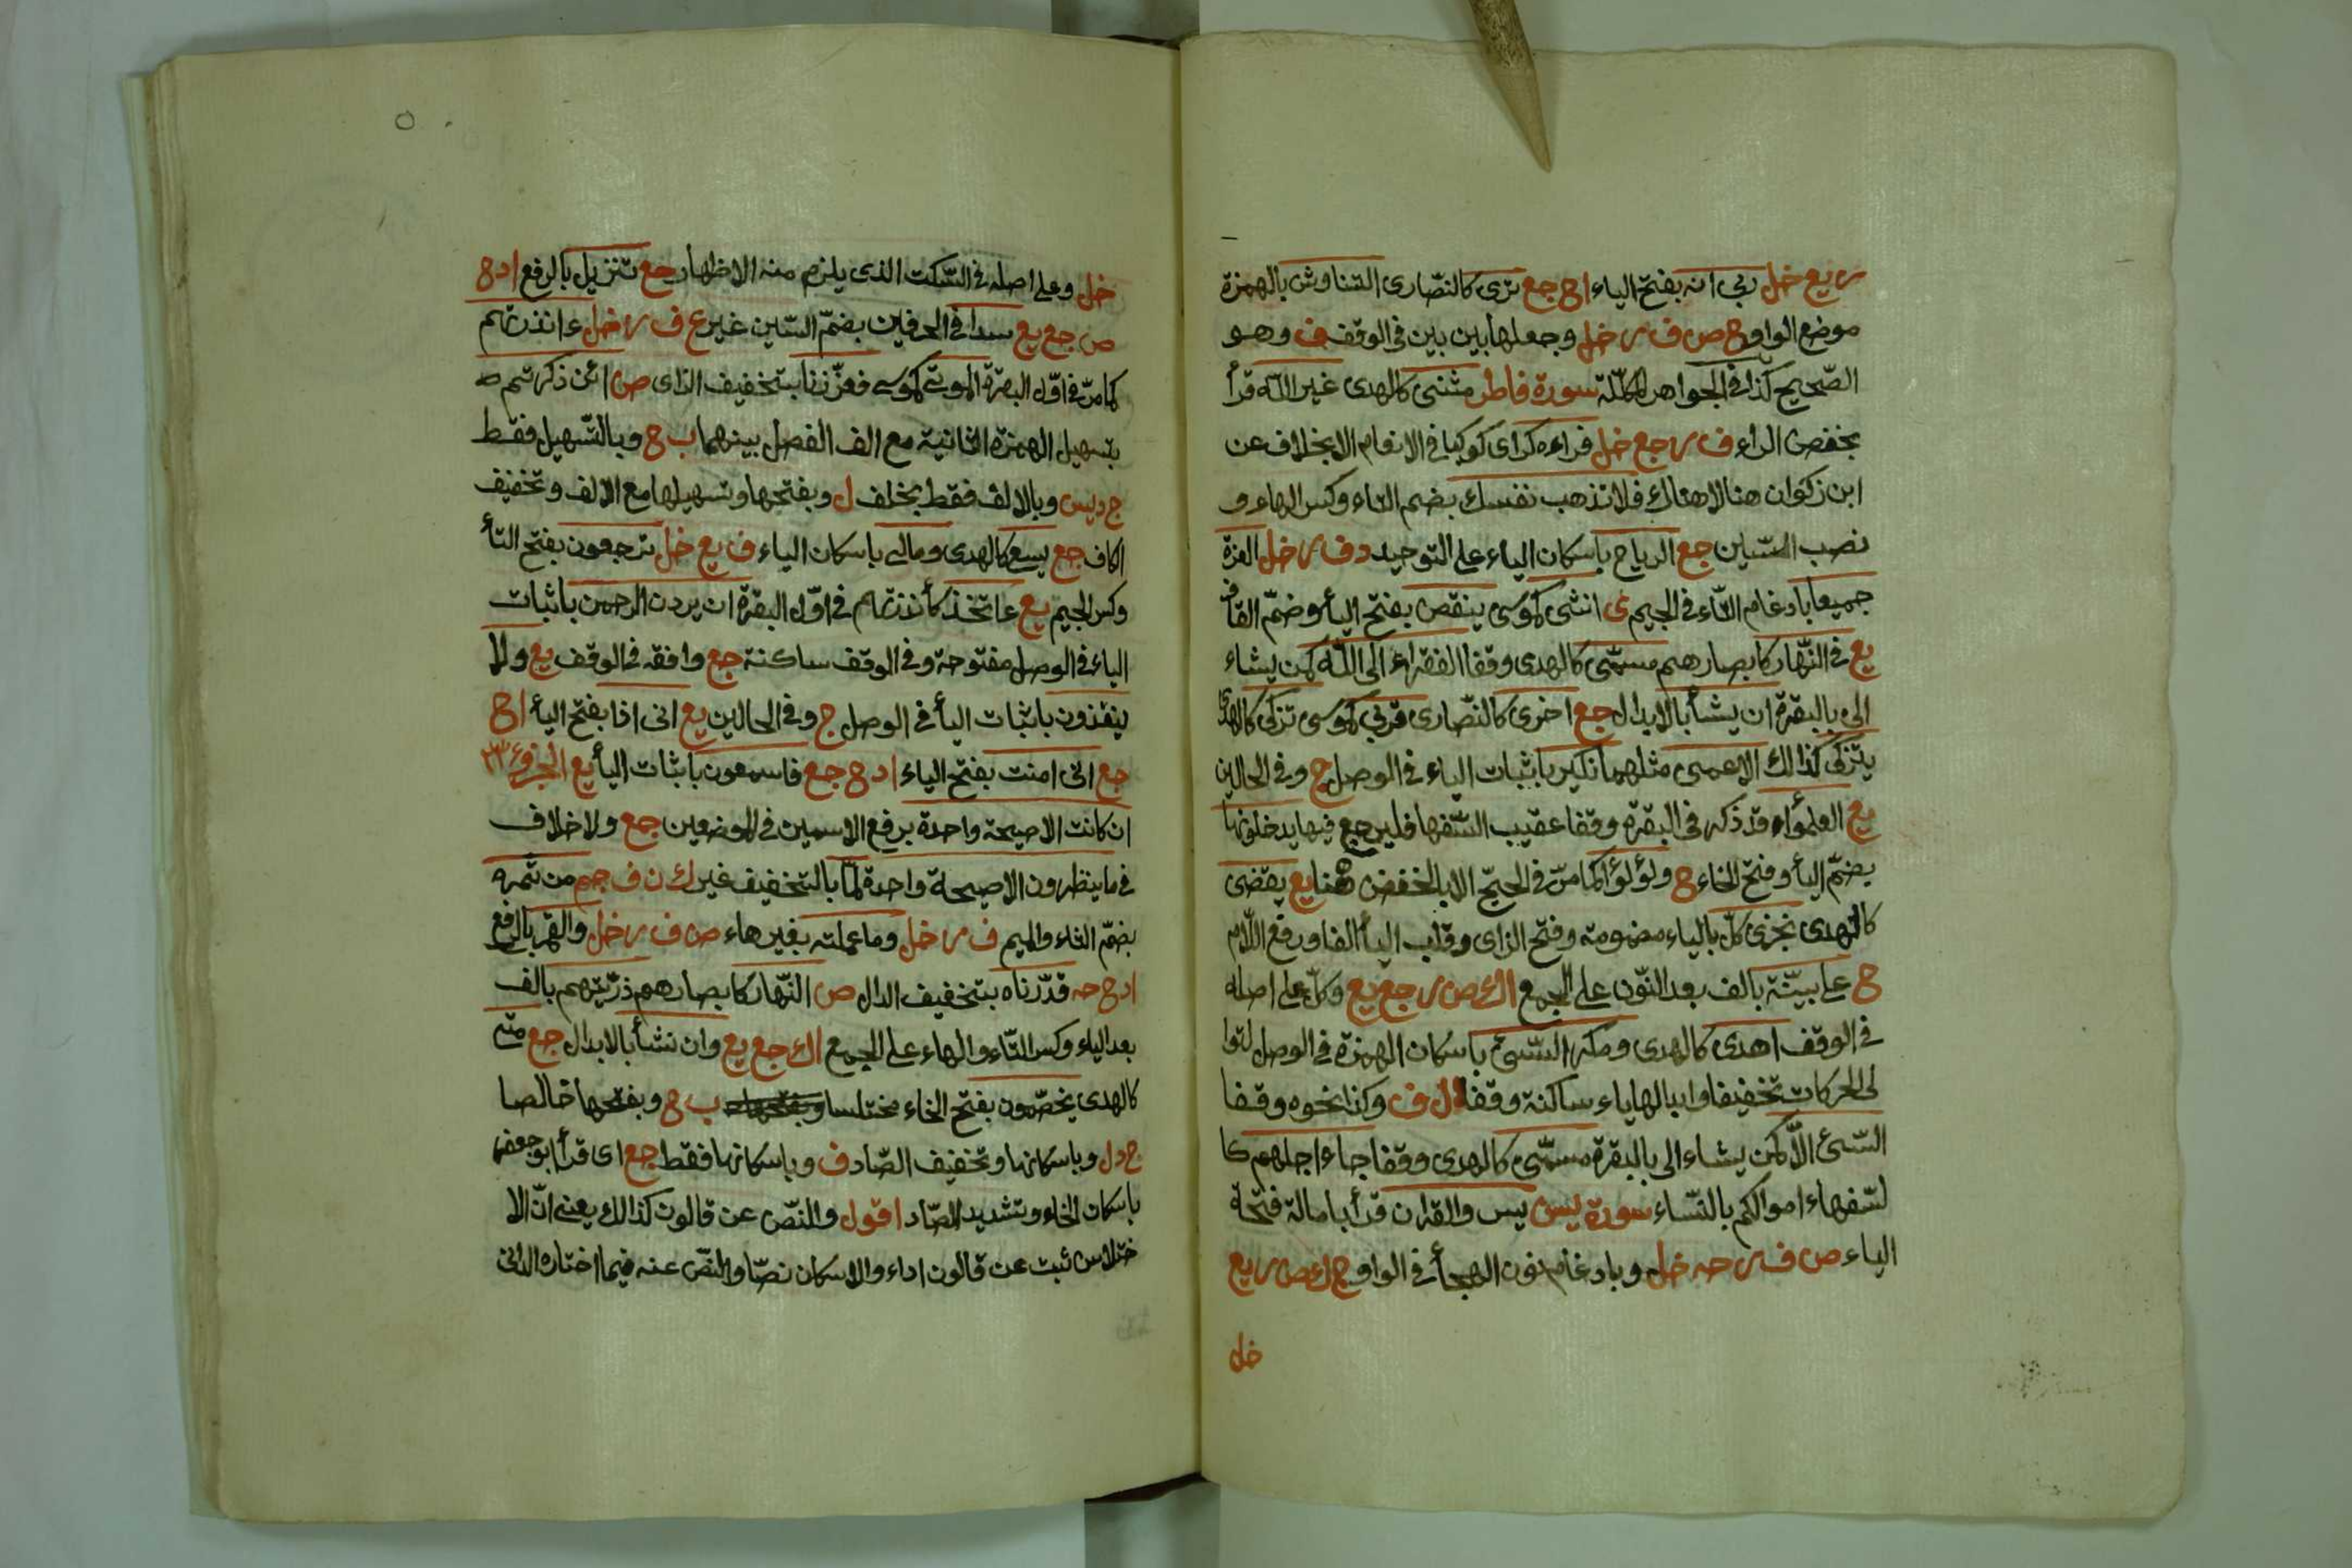 ر يع خل ربى انه بفتح الياء ا ح جع ترى كالنصارى التناوش بالهمزة
موضع الواو ح ص ف ر خل وجعلها بين بين في الوقف ف وهو
الصّحيح كذا في الجواهر المكلّلة سورة فاطر مثنى كالهدى غير اللّه قرأ
بخفض الراء ف ر جع خل فراءه كراى كوكبا في الانعام الا بخلاف عن
ابن ذكوان هنا لا هناك فلا تذهب نفسك بضم التاء وكسر الهاء و
نصب السّين جع الرياح باسكان الياء على التوحيد د ف ر خل العزة
جميعا بادغام التّاء في الجيم ى انثى كموسى ينقص بفتح اليأ وضمّ القاف
يع في النّهار كابصارهم مسمّى كالهدى وقفا الفقراء الى اللّه كمن يشاء
الى بالبقرة ان يشأ بالابدال جع اخرى كالنّصارى قربى كموسى تزكى كالهدى
يتزكى كذالك الاعمى مثلهما نكير باثبات الياء في الوصل ج وفي الحالين
يع العلمؤا قد ذكر في البقرة وقفا عقيب السّفها فليرجع فيها يدخلونها
بضمّ اليأ وفتح الخاء ح ولؤلؤا كما مرّ في الحجّ الا بالخفض هنا يع يقضى
كالهدى نجزى كلّ بالياء مضمومة وفتح الزاى وقلب اليأ الفا ورفع اللّام
ح على بيّنة بالف بعد النّون على الجمع ا ك ص ر جع يع وكلّ على اصله
في الوقف اهدى كالهدى ومكر السّيئ باسكان الهمزة في الوصل لتوا
لى الحركات تخفيفا وابدالها ياء ساكنة وقفا ل ف وكذا نحوه وقفا
السّيئ الّا كمن يشاء الى بالبقرة مسمّى كالهدى وقفا جاء اجلهم كا
لسّفهاء اموالكم بالنّساء سورة يس يس والقران قرأ بامالة فتحة
الياء ص ف ر حه خل وبادغام نون الهجأ في الواو ج ل ك ص ر يع
خل
خل وعلى اصله في السّكت الذى يلزم منه الاظهار جع تنزيل بالرفع ا د ح
ص جع يع سدا في الحرفين بضمّ السّين غير ع ف ر خل ءانذرتهم
كما مرّ في اوّل البقرة الموتى كموسى فعزّزنا بتخفيف الزاى ص ائن ذكرتم
بتسهيل الهمزة الثانية مع الف الفصل بينهما ب ح وبالتّسهيل فقط
ج د يس وبالالف فقط بخلف ل وبفتحها وتسهيلها مع الالف وتخفيف
الكاف جع يسعى كالهدى ومالى باسكان الياء ف يع خل ترجعون بفتح التأ
وكسر الجيم يع ءاتخذ كأنذرتهم في اوّل البقرة ان يردن الرحمن باثبات
الياء في الوصل مفتوحة وفي الوقف ساكنة جع وافقه في الوقف يع ولا
ينقذون باثبات اليأ في الوصل ج وفي الحالين يع انى اذا بفتح اليأ ا ح
جع انّى امنت بفتح الياء ا د ح جع فاسمعون باثبات اليأ يع الجزؤ ٢٣
ان كانت الا صيحة واحدة برفع الاسمين في الموضعين جمع ولا خلاف
في ما ينظرون الا صيحة واحدة لمّا بالتخفيف غير ك ن ف جم من ثمره
بضمّ الثاء والميم ف ر خل وما عملته بغير هاء ص ف ر خل والقمر بالرفع
ا د ح حه قدّرناه بتخفيف الدال ص النّهار كابصارهم ذرّيتهم بالف
بعد الياء وكسر التّاء والهاء على الجمع ا ك جع يع وان نشأ بالابدال جع متى
كالهدى يخصّمون بفتح الخاء مختلسا ب ح وبفتحها خالصا
ج د ل وباسكانها وتخفيف الصّاد ف وباسكانها فقط جع اى قرأ ابو جعفر
باسكان الخاء وتشديد الصّاد اقول والنصّ عن قالون كذالك يعنى انّ الا
ختلاس ثبت عن قالون اداء والاسكان نصّا والنصّ عنه فيما اختاره الدانى